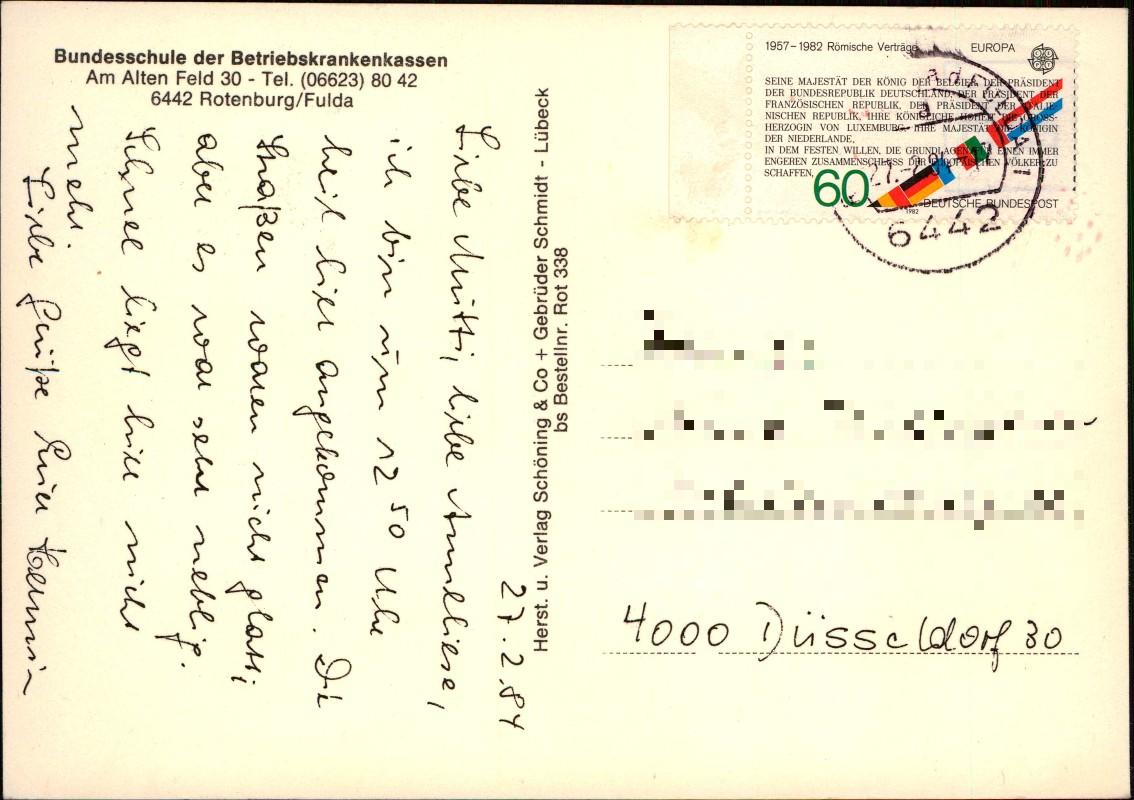 Bundesschule der Betriebskrankenkassen
Am Alten Feld 30 - Tel. (06623) 80 42
6442 Rotenburg/Fulda
27.2.84
Liebe Mutti, liebe Anneliese,
ich bin um 12 50 Uhr
heil hier angekommen. Die
Straßen waren nicht glatt;
aber es war sehr neblig.
Schnee liegt hier nicht
mehr.
Liebe Grüße Euer Hermin
Herst. u. Verlag Schöning & Co + Gebrüder Schmidt - Lübeck
bs Bestellnr. Rot 338
1957–1982 Römische Verträge EUROPA
SEINE MAJESTÄT DER KÖNIG DER BELGIER, DER PRÄSIDENT
DER BUNDESREPUBLIK DEUTSCHLAND, DER PRÄSIDENT DER
FRANZÖSISCHEN REPUBLIK, DER PRÄSIDENT DER ITALIE-
NISCHEN REPUBLIK, IHRE KÖNIGLICHE HOHEIT DIE GROSS-
HERZOGIN VON LUXEMBURG, IHRE MAJESTÄT DIE KÖNIGIN
DER NIEDERLANDE,
IN DEM FESTEN WILLEN, DIE GRUNDLAGEN FÜR EINEN IMMER
ENGEREN ZUSAMMENSCHLUSS DER EUROPÄISCHEN VÖLKER ZU
SCHAFFEN,
60
1982 DEUTSCHE BUNDESPOST
6442
4000 Düsseldorf 30